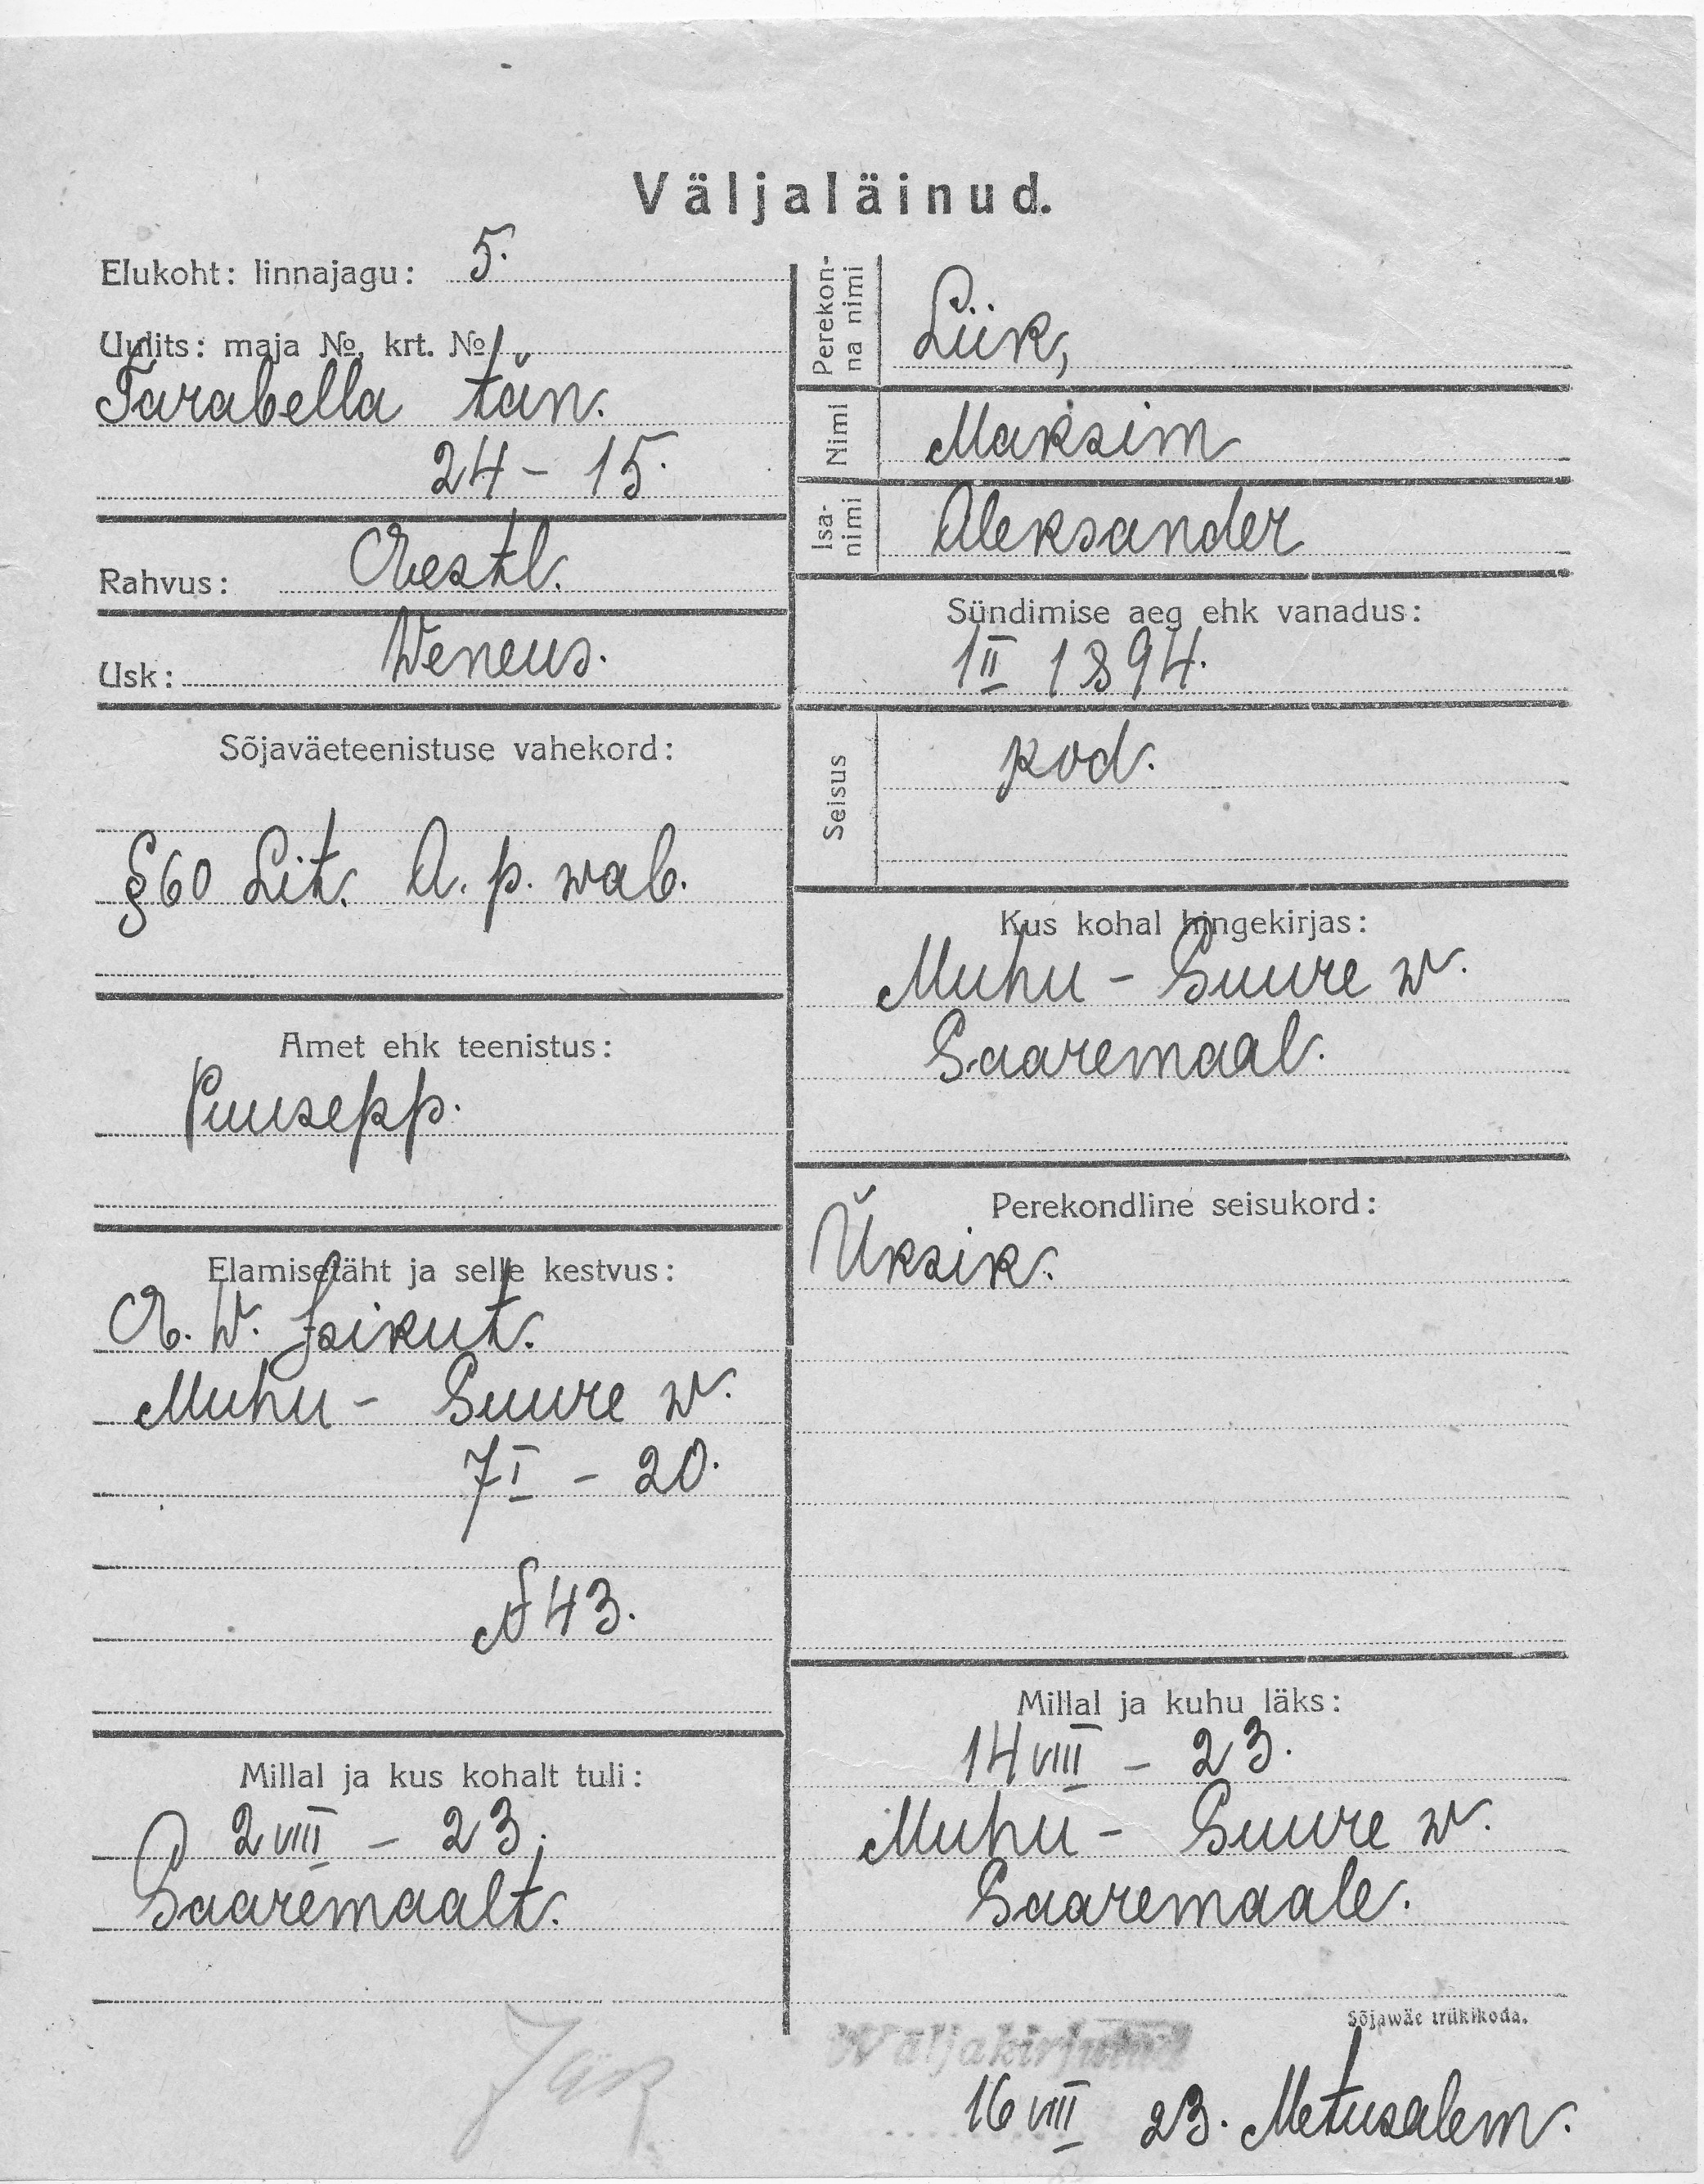 Väljaläinud.
Elukoht: linnajagu: 5.
Uulits: maja №, krt. №
Tarabella tän.
24 - 15.
Rahvus: Eestl.
Usk: Weneus.
Sõjaväeteenistuse vahekord:
§60 Lit. A. p. wab.
Amet ehk teenistus:
Puusepp.
Elamisetäht ja selle kestvus:
E. W. Isikut.
Muhu - Suure w.
7 I - 20.
№ 43.
Millal ja kus kohalt tuli:
2 VIII - 23.
Saaremaalt.
Perekon-
na nimi
Liik,
Nimi
Maksim
Isa-
nimi
Aleksander
Sündimise aeg ehk vanadus:
1 II 1894.
Seisus
kod.
Kus kohal hingekirjas:
Muhu - Suure w.
Saaremaal.
Perekondline seisukord:
Üksik.
Millal ja kuhu läks:
14 VIII - 23.
Muhu - Suure w.
Saaremaale.
Sõjawäe trükikoda.
Väljakirjutud
16 VIII 23. Metusalem.